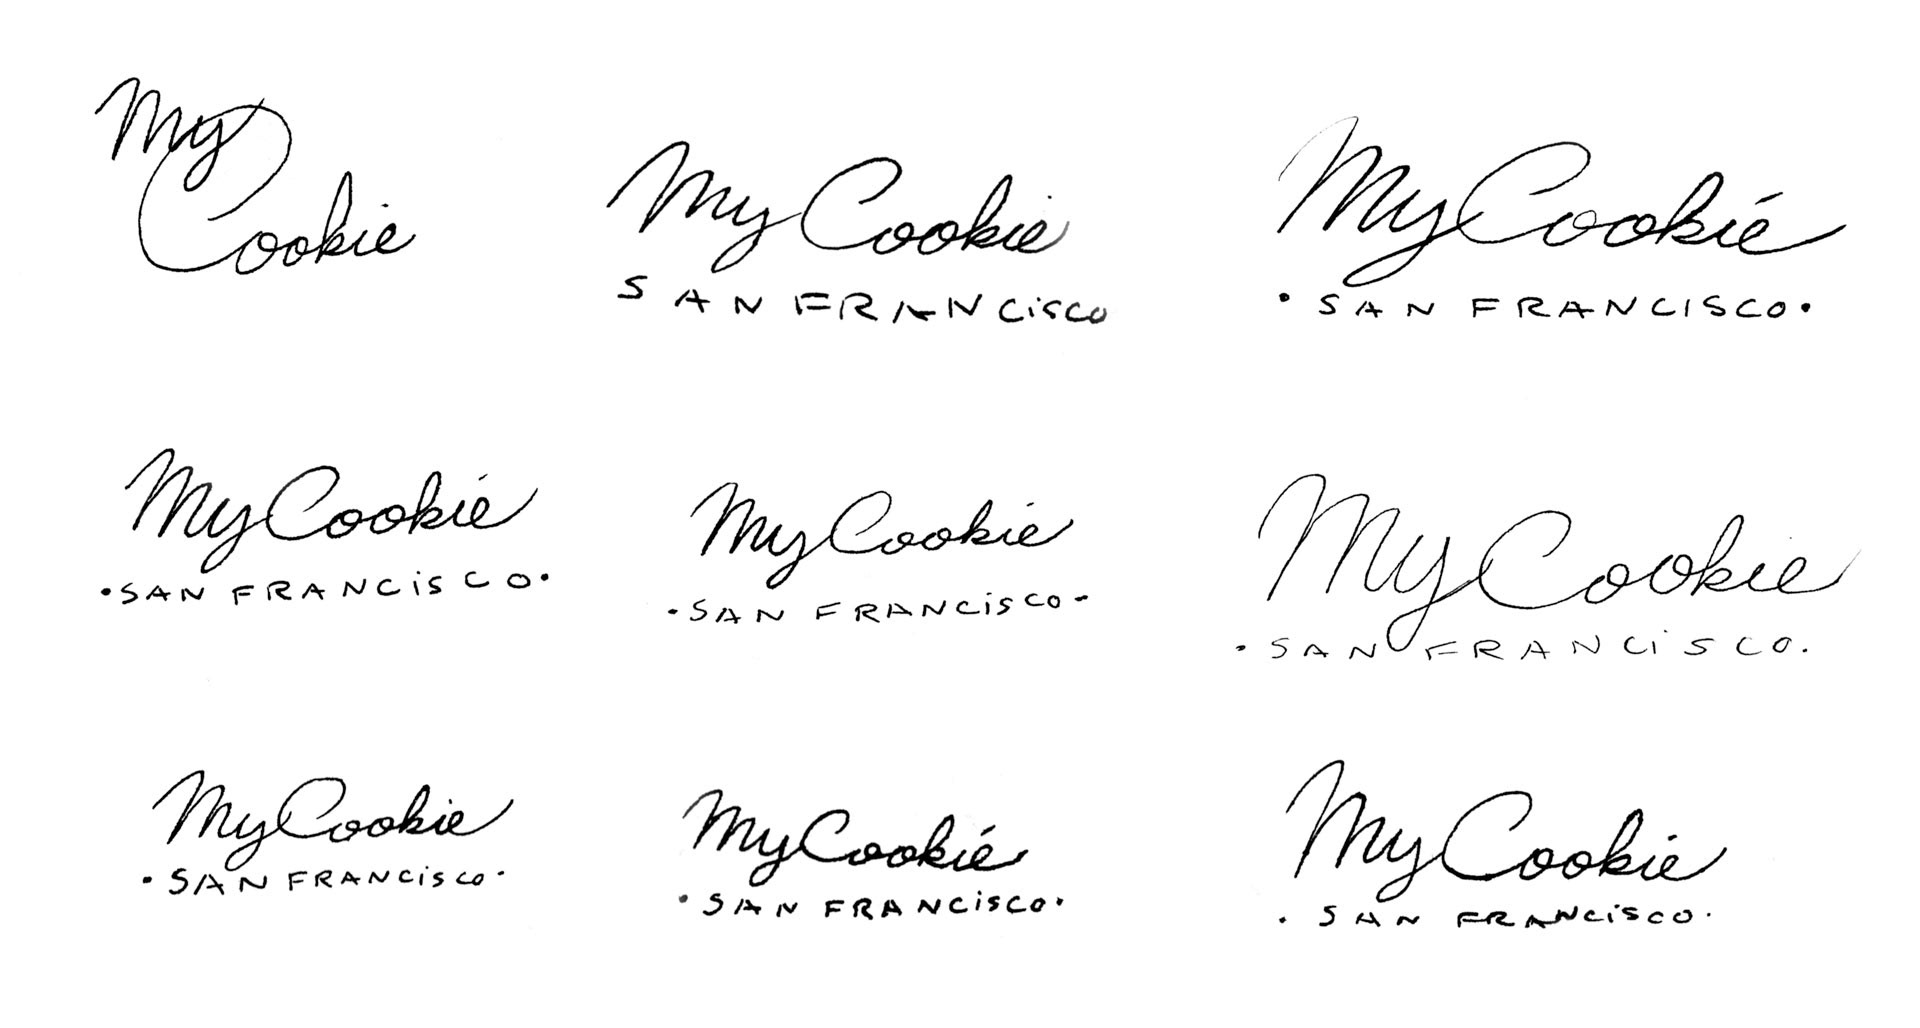 My
Cookie
My Cookie
SAN FRANCiSCO
My Cookie
• SAN FRANCISCO •
My Cookie
• SAN FRANCiSCO •
My Cookie
• SAN FRANCiSCO •
My Cookie
• SAN FRANCiSCO •
My Cookie
• SAN FRANCiSCO •
My Cookie
• SAN FRANCiSCO •
My Cookie
• SAN FRANCiSCO •